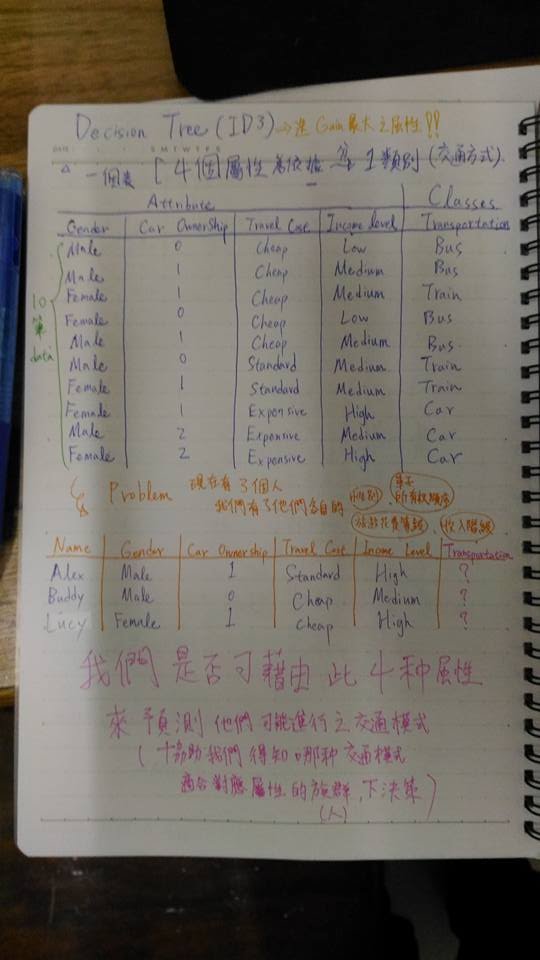 Decision Tree (ID3) ⇒ 選 Gain 最大之屬性!!
DATE S M T W T F S
△ 一個表 [ 4個屬性為依據 1類別 (交通方式).
Attribute Classes
Gender Car Ownership Travel Cost Income level Transportation
Male 0 Cheap Low Bus
Male 1 Cheap Medium Bus
Female 1 Cheap Medium Train
Female 0 Cheap Low Bus
Male 1 Cheap Medium Bus
Male 0 Standard Medium Train
Female 1 Standard Medium Train
Female 1 Expensive High Car
Male 2 Expensive Medium Car
Female 2 Expensive High Car
10筆data
Problem 現在有3個人
我們有了他們各自的 性別 車子所有权順序
旅行花費等級 收入階級
Name Gender Car Ownership Travel Cost Income Level Transportation
Alex Male 1 Standard High ?
Buddy Male 0 Cheap Medium ?
Lucy Female 1 Cheap High ?
我們是否可藉由此4种屬性
來預測他們可能進行之交通模式
(協助我們得知哪种交通模式
適合對應屬性的族群,下決策)
(人)